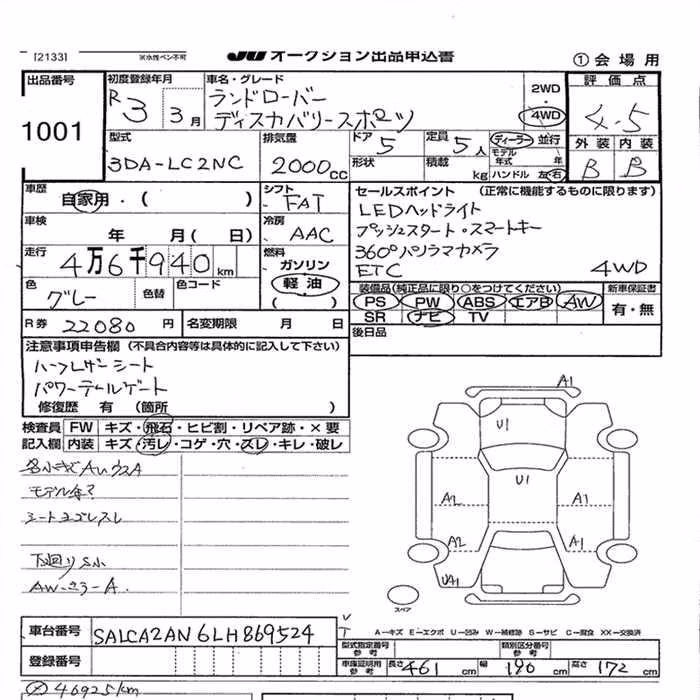 [2133]
※水性ペン不可
JU オークション出品申込書
①会場用
出品番号
1001
初度登録年月
R3 3月
車名・グレード
ランドローバー
ディスカバリースポーツ
2WD
4WD
評価点
4.5
外装 内装
B B
型式
3DA-LC2NC
排気量
2000cc
ドア
5
形状
定員
5人
積載
kg
ディーラー 並行
モデル年式 年
ハンドル 左 右
車歴
自家用・( )
シフト
FAT
セールスポイント (正常に機能するものに限ります)
LEDヘッドライト
プッシュスタート・スマートキー
360°パノラマカメラ
ETC 4WD
車検
年 月( 日)
冷房
AAC
走行
4万6千940km
燃料
ガソリン
軽油
( )
色
グレー
色替
色コード
装備品(純正品に限り○をつけてください)
PS PW ABS エアB AW
SR ナビ TV
新車保証書
有・無
R券 22080円
名変期限 月 日
後日品
注意事項申告欄 (不具合内容等は具体的に記入して下さい)
ハーフレザーシート
パワーテールゲート
修復歴 有 (箇所 )
検査員 FW キズ・飛石・ヒビ割・リペア跡・×要
記入欄 内装 キズ・汚レ・コゲ・穴・スレ・キレ・破レ
各小キズAUウスA
シートヨゴレスレ
下廻りS小
A1
U1
U1
A2
A1
A2
A1
UA1
スペア
A―キズ E―エクボ U―凹み W―補修跡 S―サビ C―腐食 XX―交換済
車台番号
SALCA2AN6LH869524
登録番号
型式指定番号
参考
類別区分番号
参考
車庫証明用
参考
長さ 461 cm 幅 190 cm 高さ 172 cm
46925km